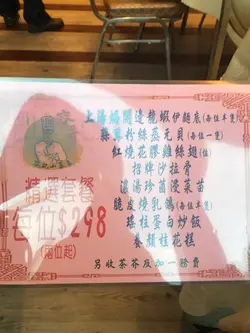 上湯焗開邊龍蝦伊麵底(每位半隻)
蒜茸粉絲蒸元貝(每位一隻)
紅燒花膠雞絲翅(位)
招牌沙拉骨
濃湯珍菌浸菜苗
脆皮燒乳鴿(每位半隻)
瑤柱蛋白炒飯
養顏桂花糕
精選套餐
每位$298
(兩位起)
另收茶芥及加一服務費